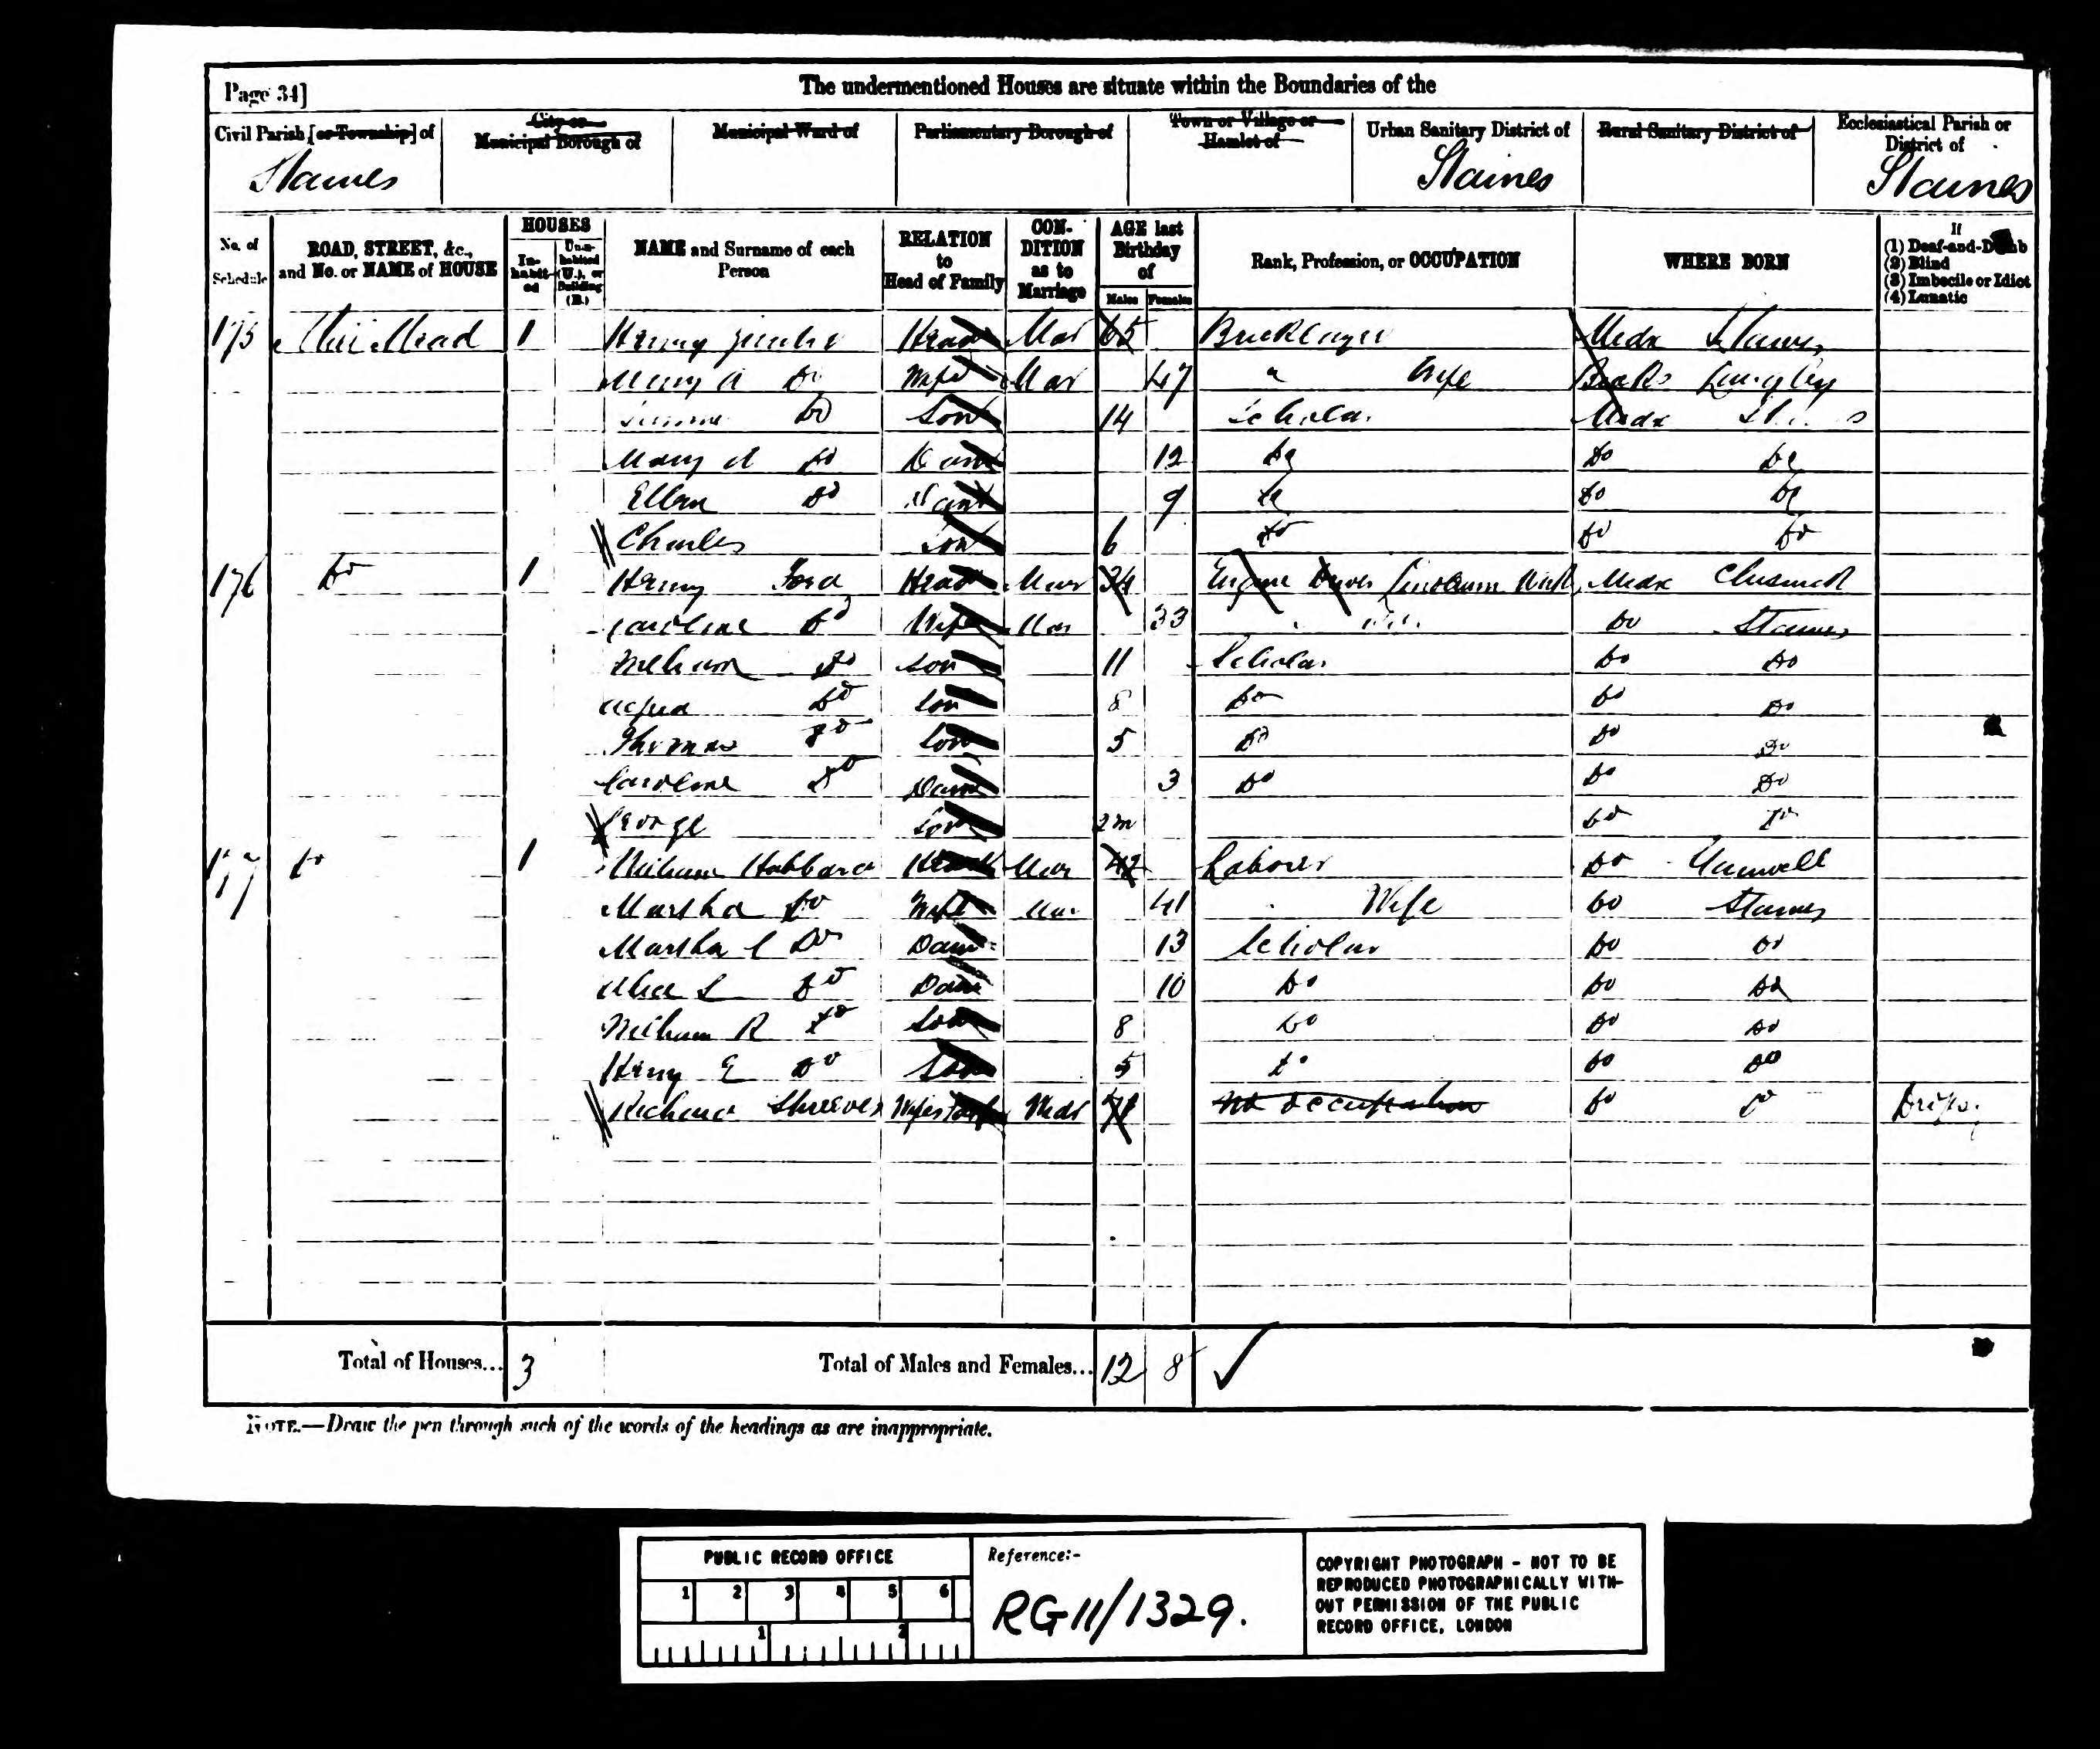 Page 34]
The undermentioned Houses are situate within the Boundaries of the
Civil Parish [or Township] of
City or Municipal Borough of
Municipal Ward of
Parliamentary Borough of
Town or Village or Hamlet of
Urban Sanitary District of
Rural Sanitary District of
Ecclesiastical Parish or District of
Staines
Staines
Staines
No. of Schedule
ROAD, STREET, &c., and No. or NAME of HOUSE
HOUSES
Inhabited
Uninhabited (U.), or Building (B.)
NAME and Surname of each Person
RELATION to Head of Family
CONDITION as to Marriage
AGE last Birthday of
Males
Females
Rank, Profession, or OCCUPATION
WHERE BORN
If
(1) Deaf-and-Dumb
(2) Blind
(3) Imbecile or Idiot
(4) Lunatic
175 Mead 1 Henry Head Mar 65 Bricklayer Midx Staines
Mary A Do Wife Mar 47 " Wife Bucks Langley
Do Son 14 Scholar Midx
Mary A Do Daur 12 Do Do Do
Ellen Do Daur 9 Do Do Do
Charles Son 6 Do Do Do
176 Do 1 Henry Ford Head Mar 34 Engine Driver Linoleum Midx Chiswick
Caroline Do Wife Mar 33 Do Staines
William Do Son 11 Scholar Do Do
Alfred Do Son 8 Do Do Do
Thomas Do Son 5 Do Do Do
Caroline Do Daur 3 Do Do Do
George Son 2m Do Do
177 Do 1 William Hubbard Head Mar 42 Labourer Do
Martha Do Wife Mar 41 Wife Do Staines
Martha Do Daur 13 Scholar Do Do
Alice L Do Daur 10 Do Do Do
William R Do Son 8 Do Do Do
Henry E Do Son 5 Do Do Do
Richard Wifes No occupation Do Do
Total of Houses... 3
Total of Males and Females... 12 8
NOTE.—Draw the pen through such of the words of the headings as are inappropriate.
PUBLIC RECORD OFFICE
1 2 3 4 5 6
1 2
Reference:-
RG 11/1329.
COPYRIGHT PHOTOGRAPH - NOT TO BE
REPRODUCED PHOTOGRAPHICALLY WITH-
OUT PERMISSION OF THE PUBLIC
RECORD OFFICE, LONDON